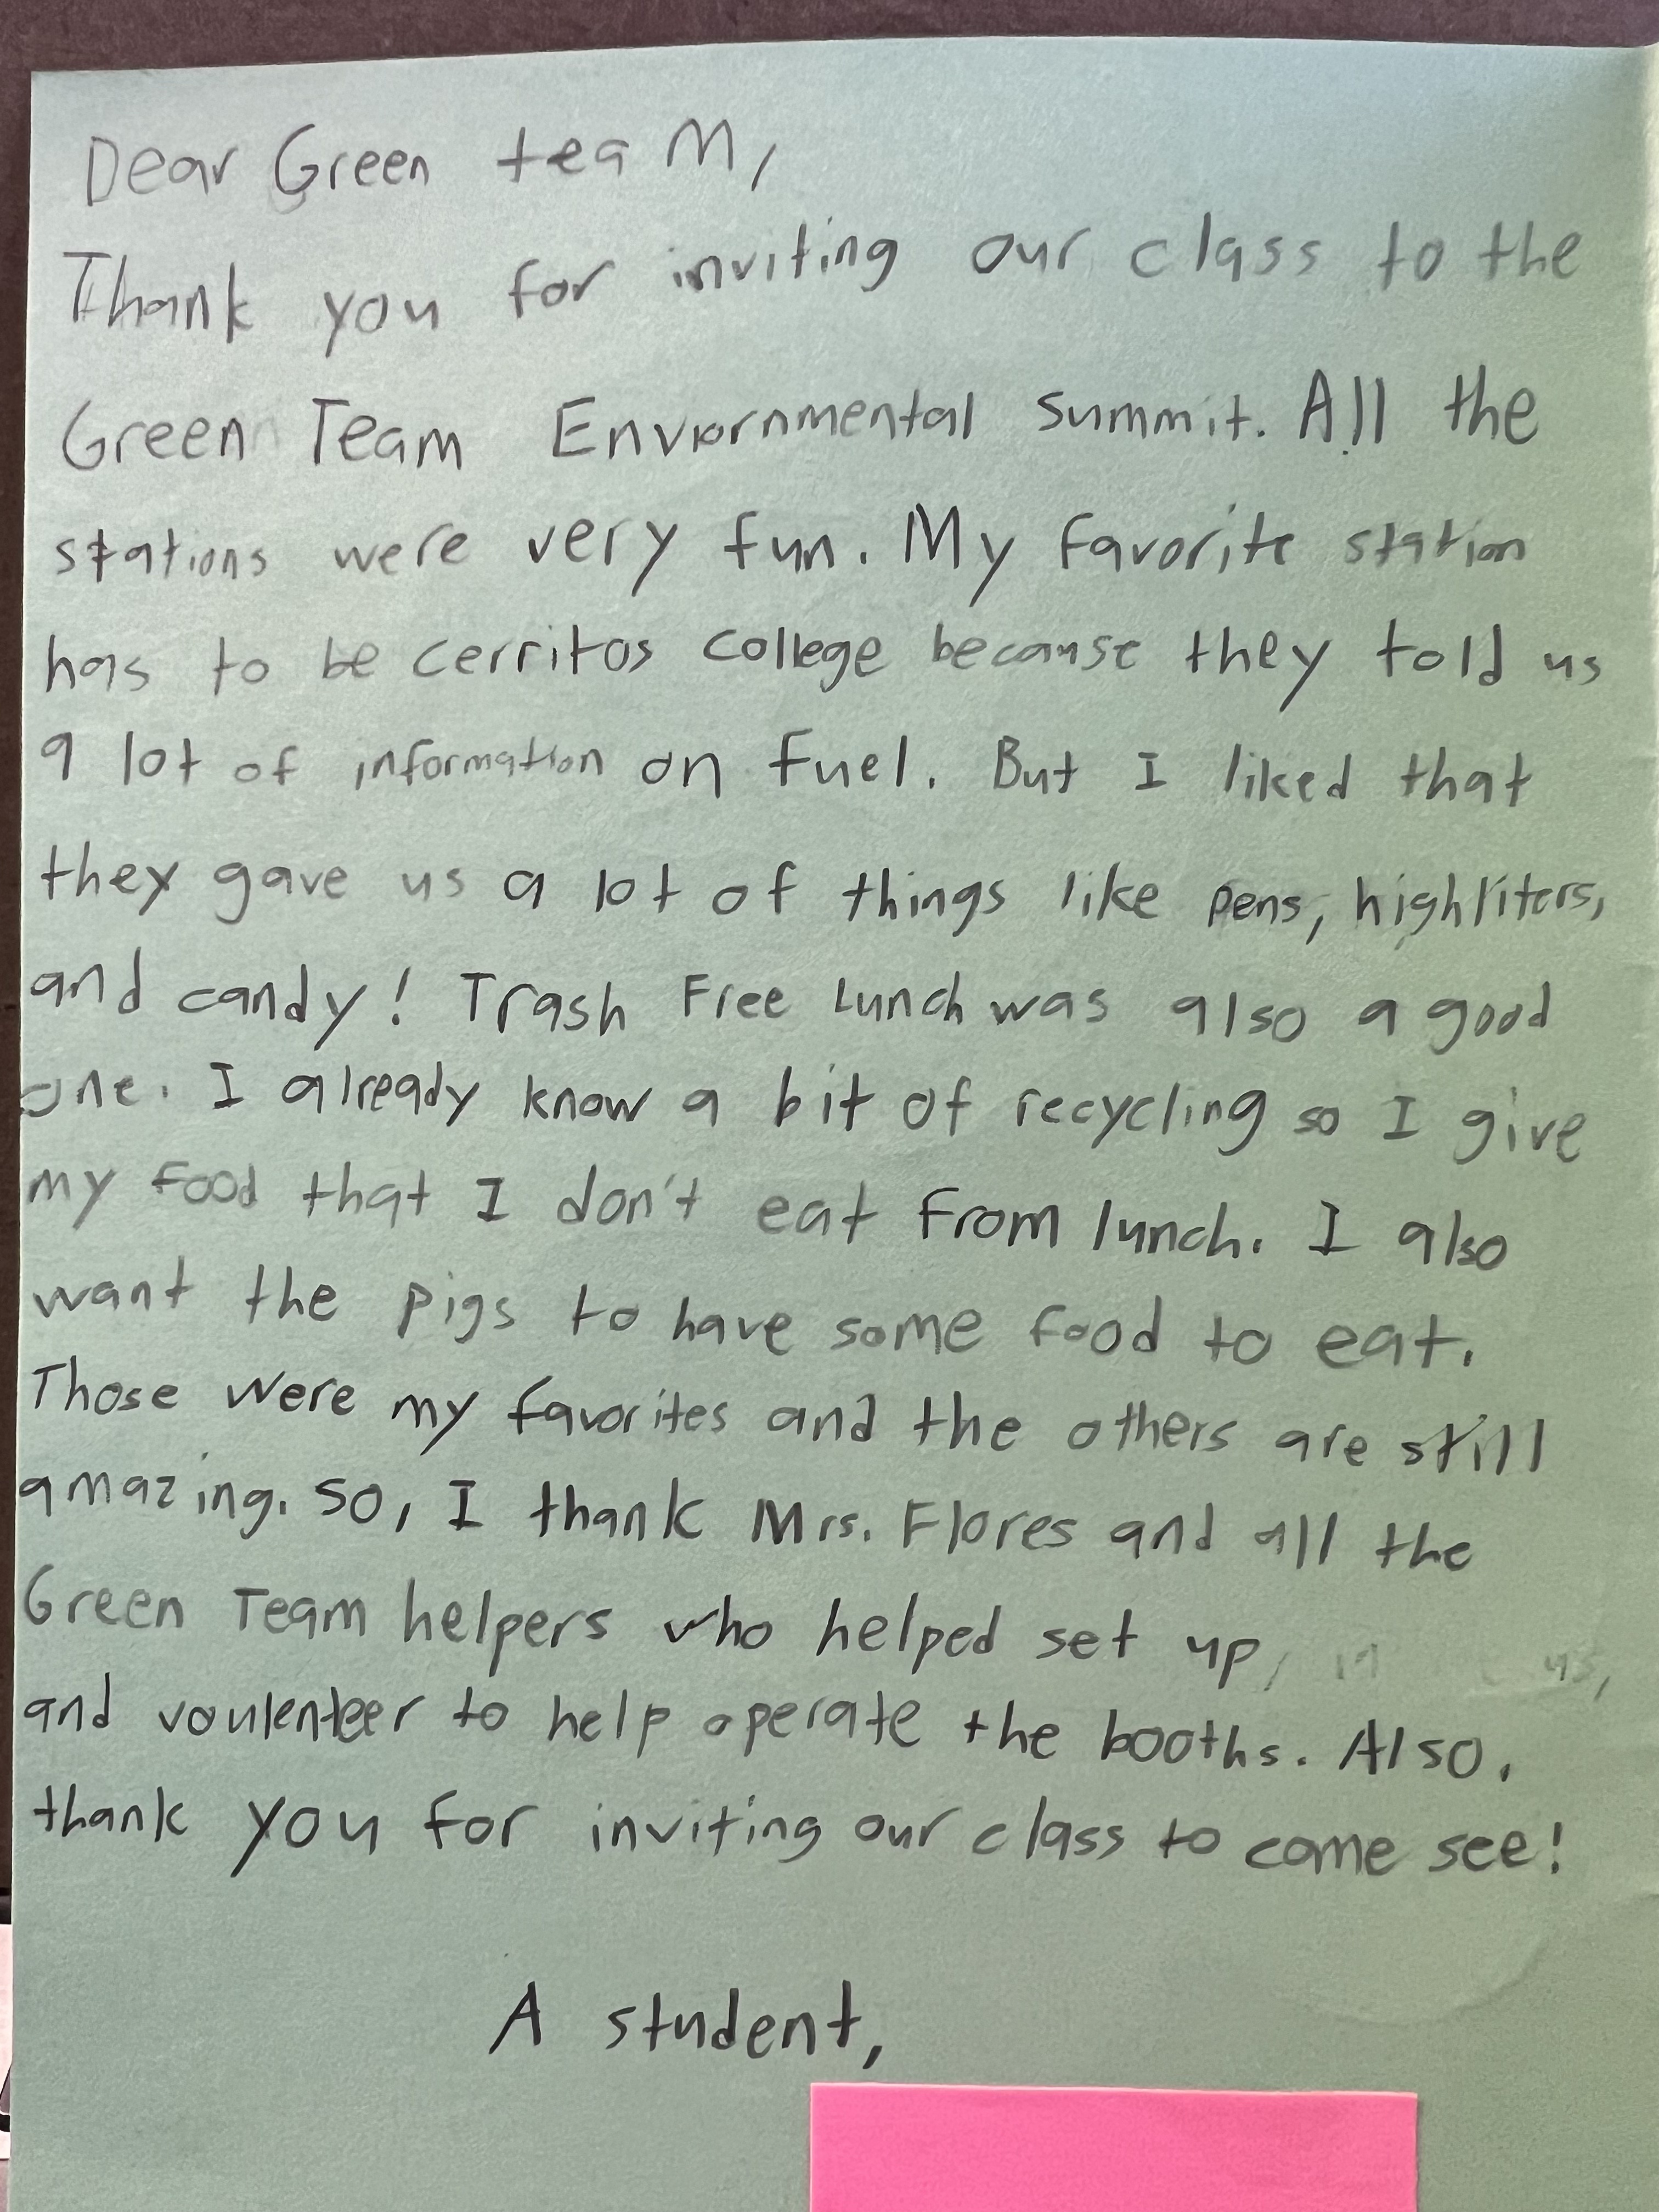 Dear Green teaM,
Thank you for inviting our class to the
Green Team Enviornmental summit. All the
stations were very fun. My favorite station
has to be cerritos college because they told us
a lot of information on fuel. But I liked that
they gave us a lot of things like pens, highliters,
and candy! Trash Free Lunch was also a good
one. I already know a bit of recycling so I give
my food that I don't eat from lunch. I also
want the pigs to have some food to eat.
Those were my favorites and the others are still
amazing. So, I thank Mrs. Flores and all the
Green Team helpers who helped set up,
and voulenteer to help operate the booths. Also,
thank you for inviting our class to come see!
A student,